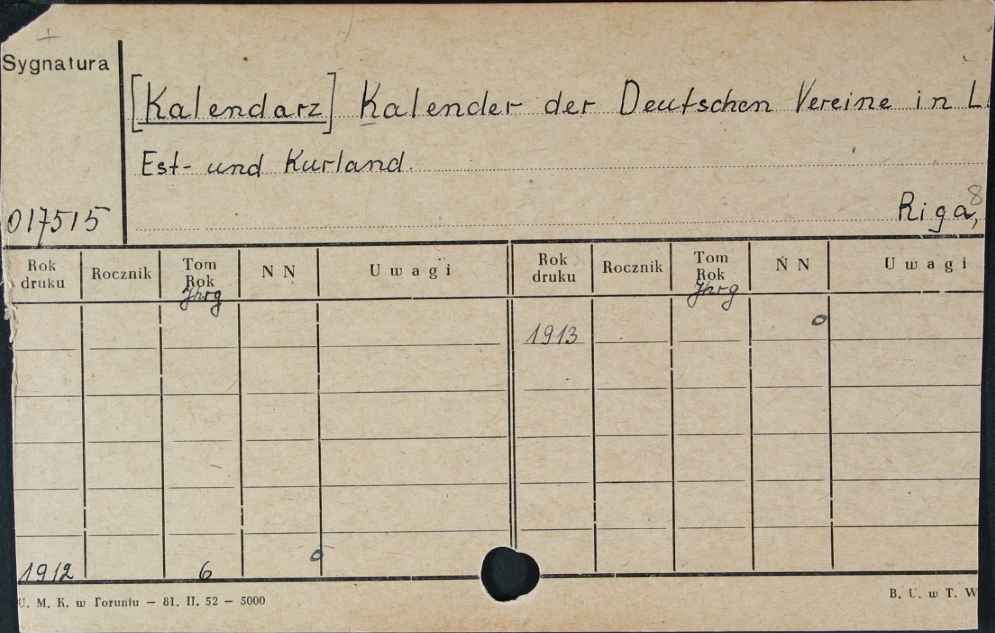 Sygnatura
[Kalendarz] Kalender der Deutschen Vereine in L
Est- und Kurland.
017515
Riga, 8
Rok druku Rocznik Tom Rok Jhrg N N Uwagi Rok druku Rocznik Tom Rok Jhrg N N Uwagi
1913
1912 6
U. M. K. w Toruniu — 81. II. 52 — 5000
B. U. w T. W